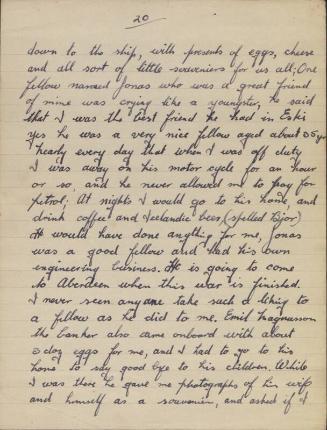 20
down to the ship, with presents of eggs, cheese
and all sort of little souveniers for us all; One
fellow named Jonas who was a great friend
of mine was crying like a youngster, he said
that I was the best friend he had in Eski
yes he was a very nice fellow aged about 35 yrs
nearly every day that when I was off duty
I was away on his motor cycle for an hour
or so, and he never allowed me to pay for
petrol; At nights I would go to his home, and
drink coffee and Icelandic beer, (spelled Bjor)
He would have done anything for me, Jonas
was a good fellow and had his own
engineering business. He is going to come
to Aberdeen when this war is finished.
I never seen anyone take such a liking to
a fellow as he did to me. Emil Magnusson
the banker also came onboard with about
3 doz eggs for me, and I had to go to his
home to say good bye to his children. While
I was there he gave me photographs of his wife
and himself as a souvenier, and asked if I